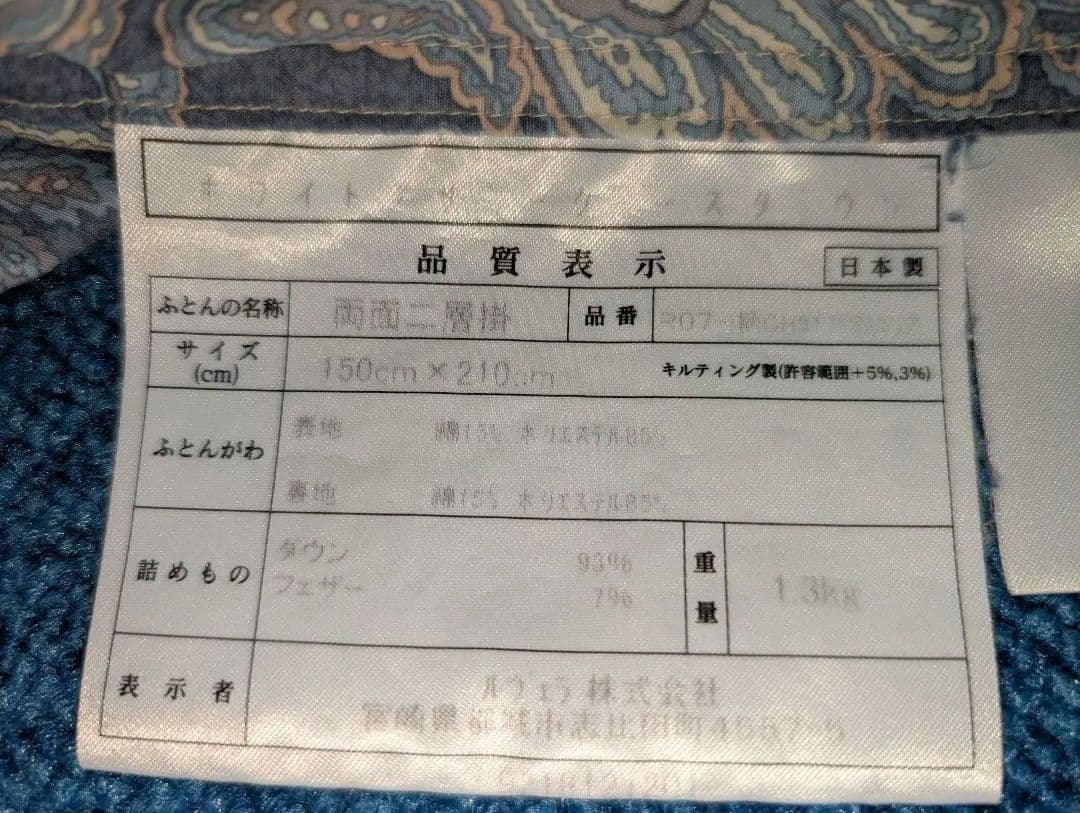 ホワイト
品質表示
日本製
ふとんの名称 両面二層掛 品番
サイズ
(cm) 150cm×210cm キルティング製(許容範囲+5%,3%)
ふとんがわ
表地 綿15% ポリエステル85%
裏地 綿15% ポリエステル85%
詰めもの
ダウン 93%
フェザー 7%
重量 1.3kg
表示者
株式会社
宮崎県都城市志比田町